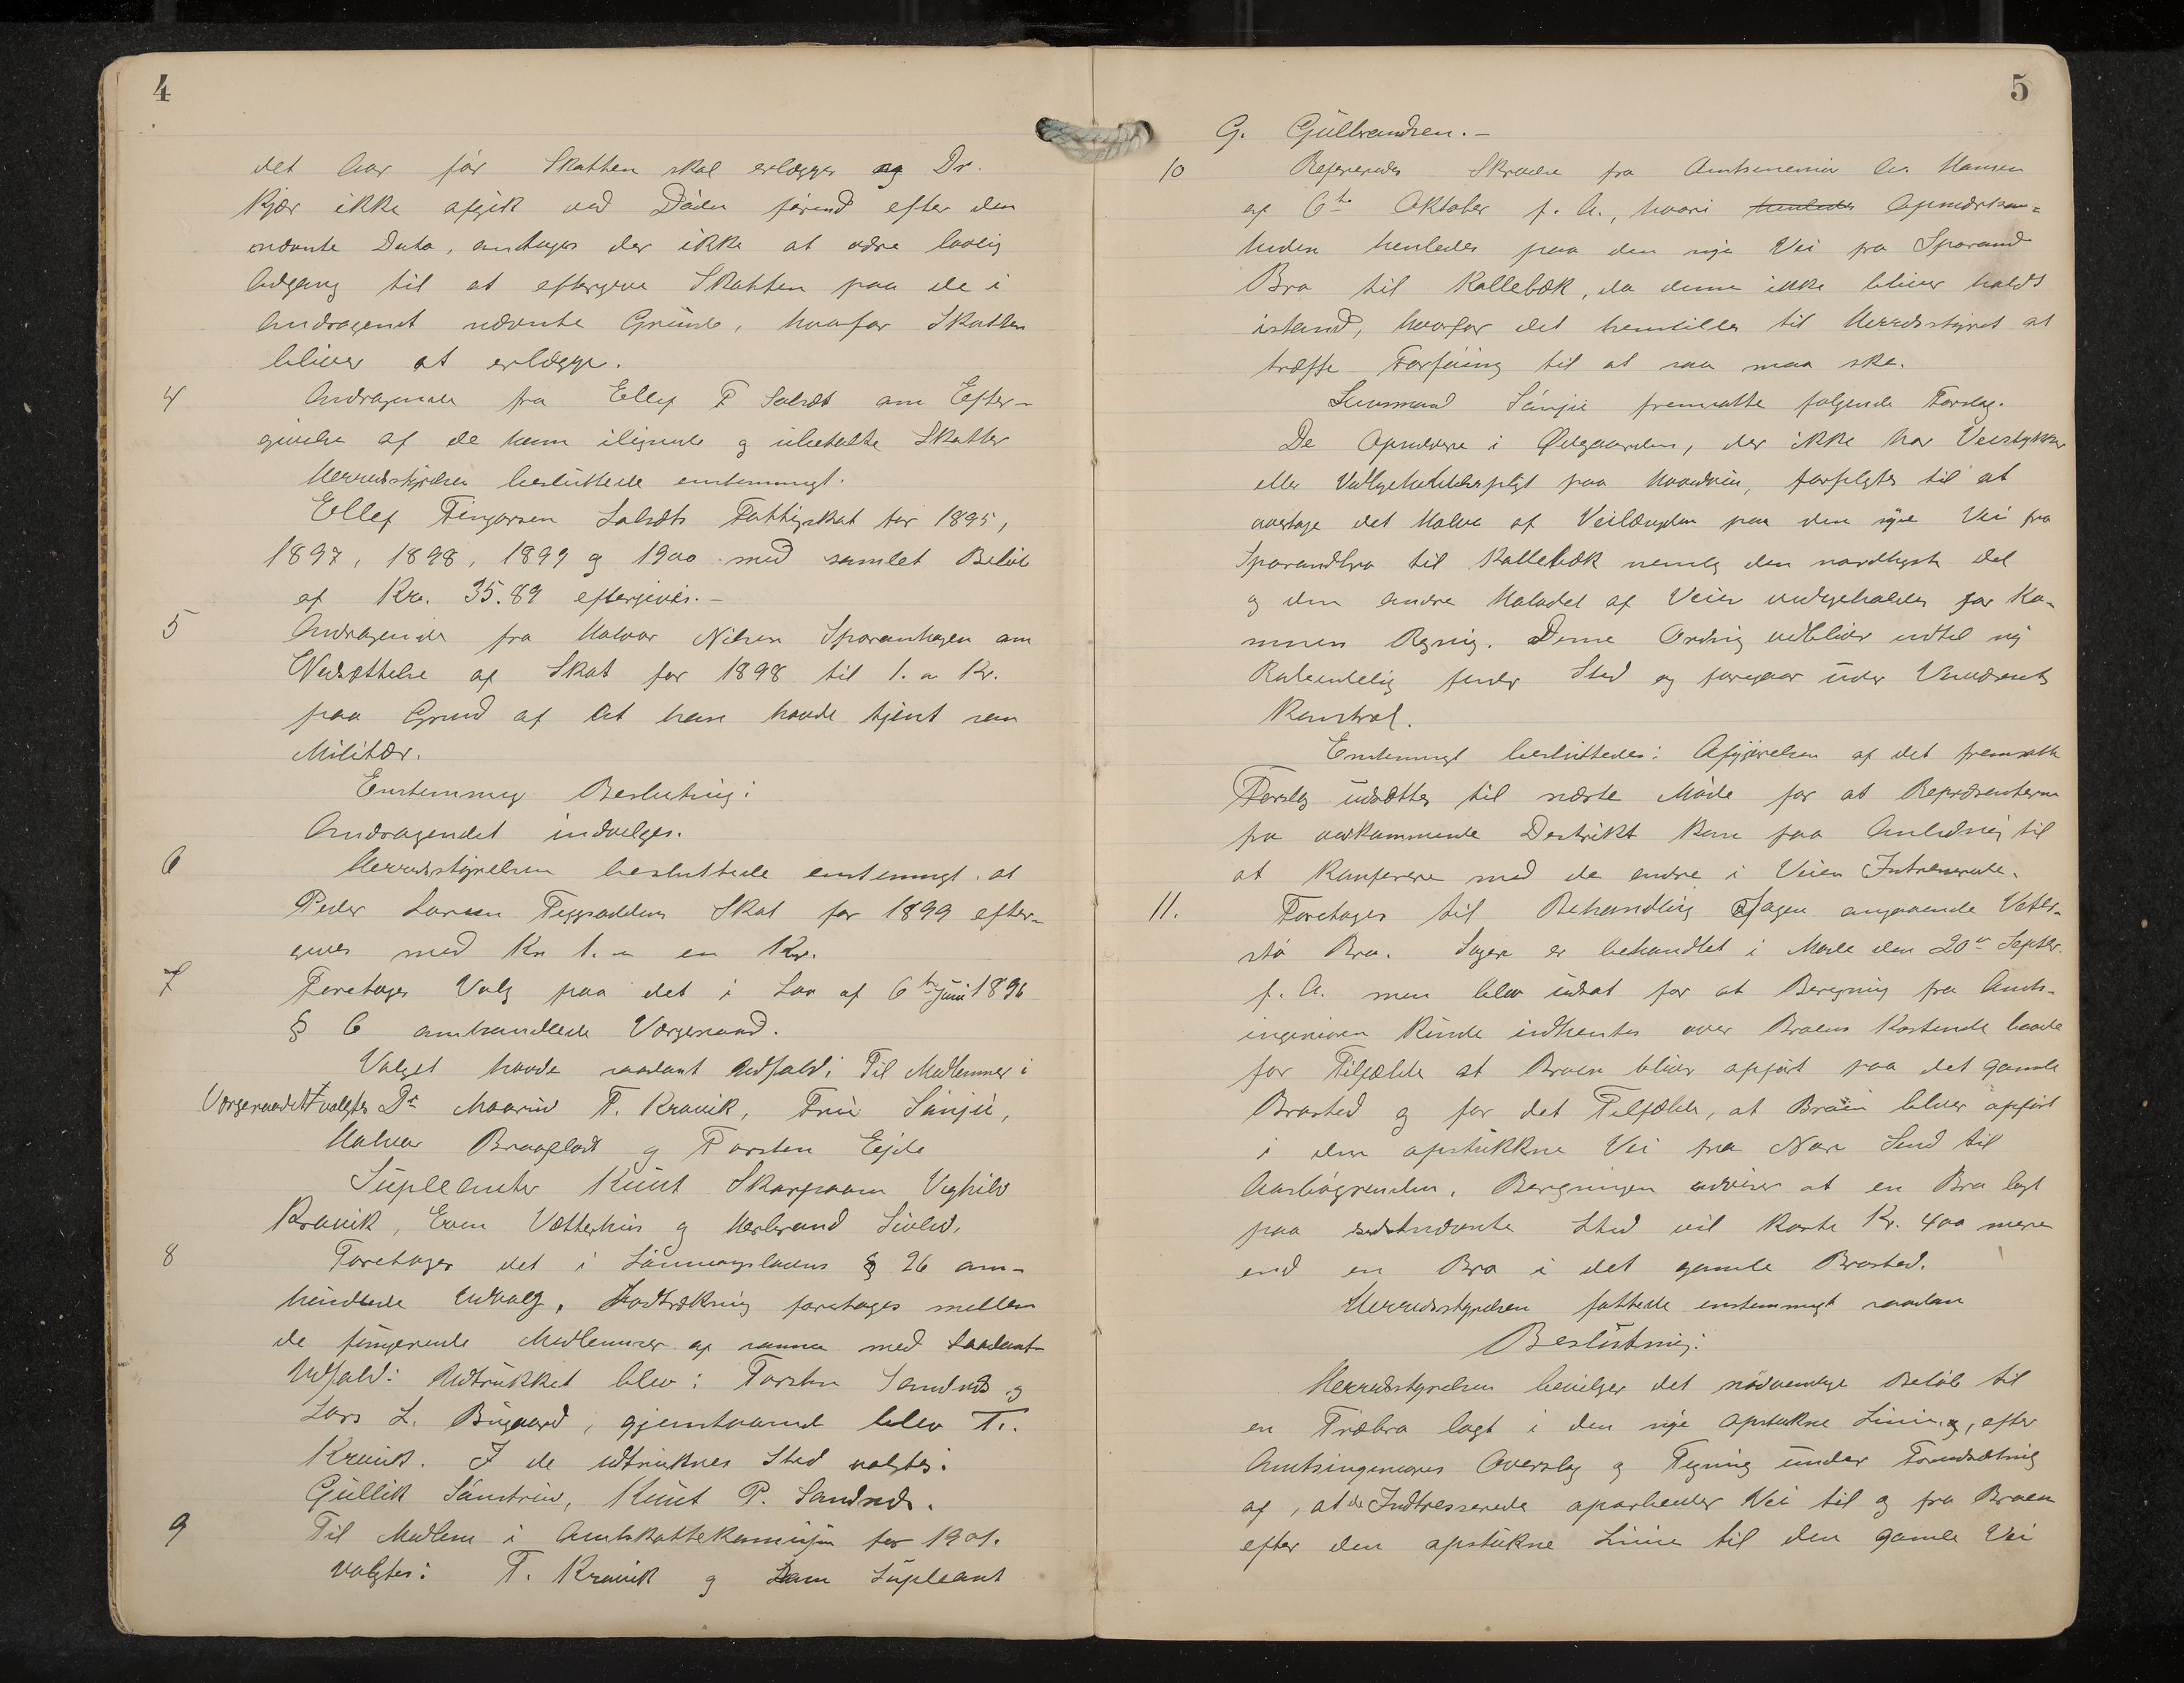 4
det Aar før Skatten skal erlægges og Dr.
Kjær ikke afgik ved Døden førend efter den
nævnte Dato, antages der ikke at være lovlig
Adgang til at eftergive Skatten paa de i
Andragendet nævnte Grunde, hvorfor Skatten
bliver at erlægge.
4 Andragende fra Ellef F Salsæt om Efter-
givelse af de ham ilignede og ubetalte Skatter
Herredsstyrelsen besluttede enstemmigt.
Ellef Fingarsen Salsæts Fattigskat for 1895,
1897, 1898, 1899 og 1900 med samlet Beløb
af Kr. 35.89 eftergives.-
5 Andragende fra Halvor Nilsen Sporanhagen om
Nedsættelse af Skat for 1898 til 1. a Kr.
paa Grund af At han havde tjent som
Militær.
Enstemmig Beslutning:
Andragendet indvilges.
6 Herredsstyrelsen besluttede enstemmigt at
Peder Larsen Skat for 1899 efter-
gives med Kr 1.- en Kr.
7 Foretoges Valg paa det i Lov af 6te Juni 1896
§ 6 omhandlede Vergeraad.
Valget havde saadant Udfald: Til Medlemmer i
Vergeraadet valgtes Dr T. Kravik, Fru Sønju,
Halvor Braaflodt og Torsten Eijde
Supleanter Knut Skarpaam Vighild
Kravik, Even Vætterhus og Herbrand
8 Foretoges det i Lønningslovens § 26 om-
handlede Udvalg, Lodtrækning foretoges mellem
de fungerende Medlemmer af samme med saadant
Udfald: Udtrukket blev: Torsten Sandnes og
Lars L. Bugaard, gjenstaaende blev T.
Kravik. I de udtruknes Sted valgtes:
Gullik Såndrud, Knut P. Sandnes.
9 Til Medlem i Amtskattekomisjon for 1901.
valgtes: T. Kravik og som Supleant
5
G. Gulbrandsen.-
10 Refereredes Skrivelse fra Chr. Hansen
af 6te Oktober f. A., hvori henledes Opmærksom=
heden henledes paa den nye Vei fra Sporand
Bro til Kallebæk, da denne ikke bliver holdt
istand, hvorfor det henstilles til Herredsstyret at
træffe Forføining til at saa maa ske.
Lensmand Sønju fremsatte følgende Forslag.
De Opsiddere i Ødegaarden, der ikke har Veistykker
eller Vedligeholdelsespligt paa Hovedveien, forpligtes til at
overtage det Halve af Veilængden paa den nye Vei fra
Sporandbro til Kallebæk nemlig den nordligste Del
og den andre Halvdel af Veien vedligeholdes for Ko-
munens Regning. Denne Ordning vedbliver indtil ny
finder Sted og foregaar under
Kontrol.
Enstemmigt besluttedes: Afgjørelsen af det fremsatte
Forslag udsættes til næste Møde for at Repræsenterne
fra vedkommende Destrikt kan faa Anledning til
at konferere med de andre i Veien Intreserede.
11. Foretoges til Behandling Sagen angaaende Vetter-
stø Bro. Sagen er behandlet i Møde den 20de Septbr.
f. A. men blev udsat for at Beregning fra Amts-
ingeniøren kunde indhentes over Broens Kostende baade
for Tilfælde at Broen bliver opført paa det gamle
Brosted og for det Tilfælde, at Broen bliver opført
i den opstukkne Vei fra Nore Sund til
Aasbøgrenden. Beregningen udviser at en Bro lagt
paa sidstnævnte Sted vil koste Kr. 400 mere
end en Bro i det gamle Brosted.
Herredsstyrelsen fattede enstemmigt saadan
Beslutning:
Herredsstyrelsen bevilger det nødvendige Beløb til
en Træbro lagt i den nye opstukne Linie, efter
Amtsingeniørens Overslag og Tegning under Forudsætning
af, at de Indtresserede oparbeider Vei til og fra Broen
efter den opstukne Linie til den gamle Vei